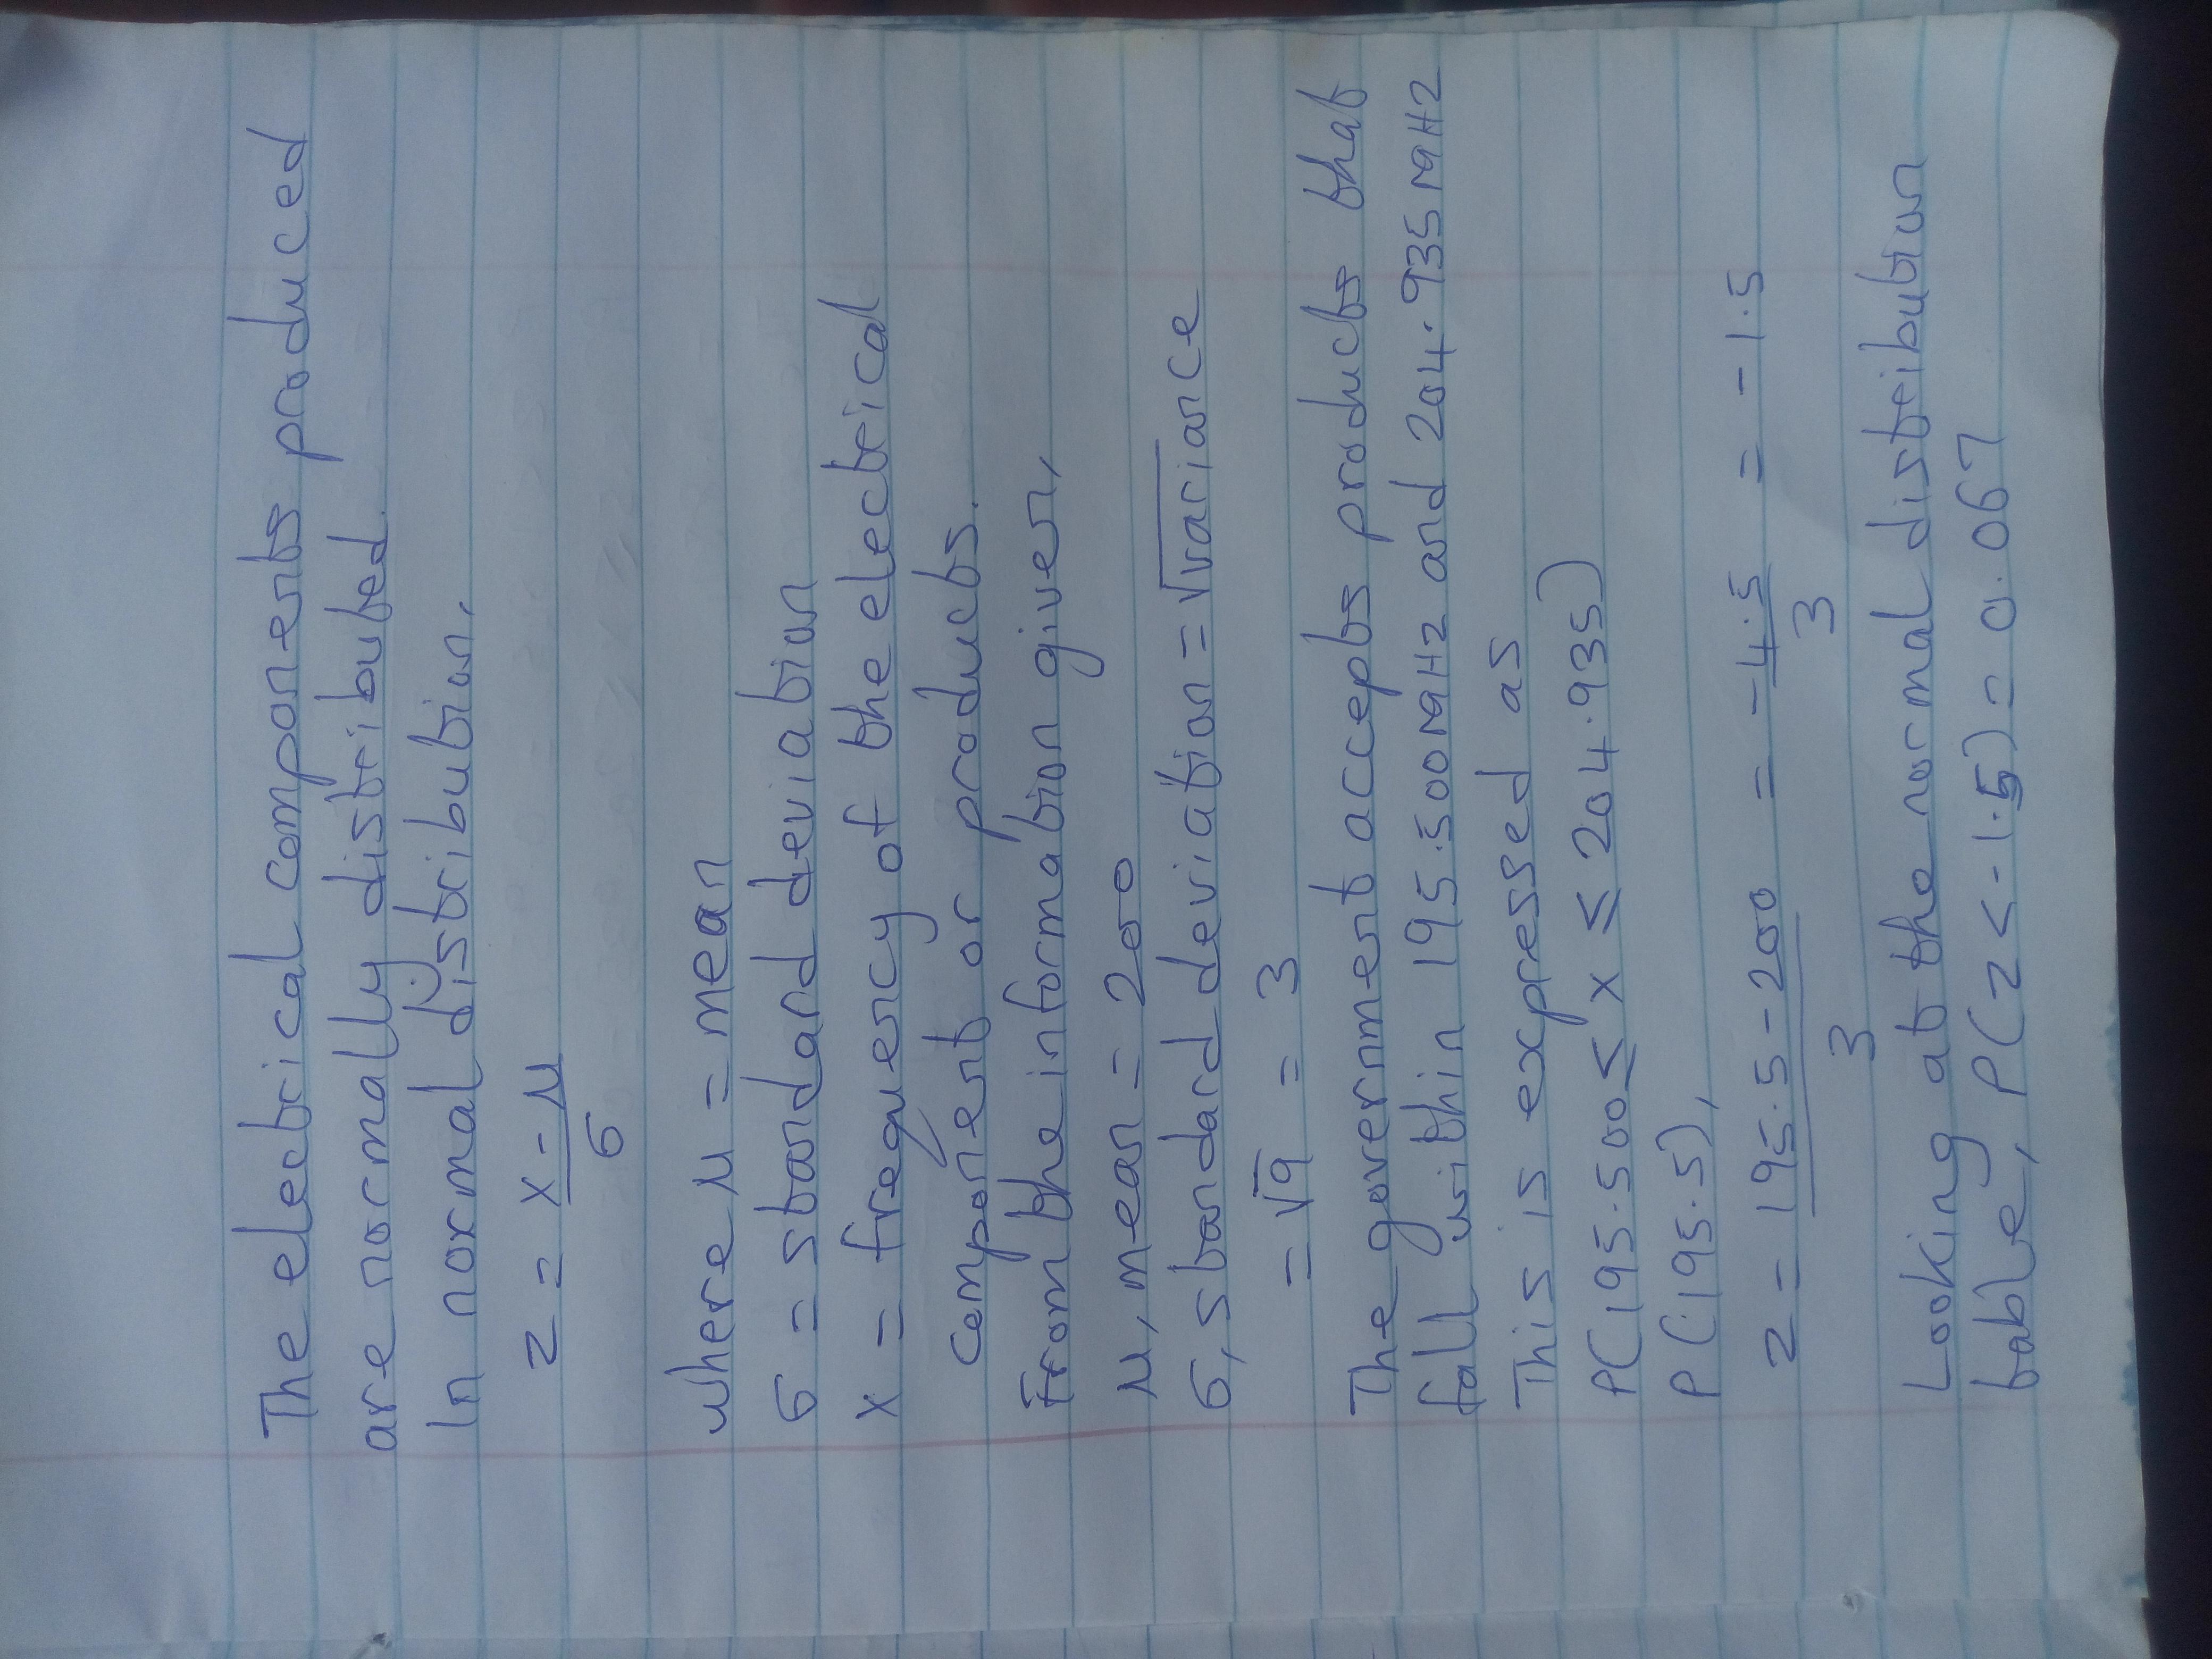 The electrical components produced
are normally distributed.
In normal distribution,
z = x - μ
σ
where μ = mean
σ = standard deviation
x = frequency of the electrical
component or products.
From the information given,
μ, mean = 200
σ, standard deviation = √variance
= √9 = 3
The government accepts products that
fall within 195.500MHz and 204.935MHz
This is expressed as
P(195.500 ≤ x ≤ 204.935)
P(195.5),
z = 195.5 - 200 = -4.5 = -1.5
3 3
Looking at the normal distribution
table, P(z < -1.5) = 0.067